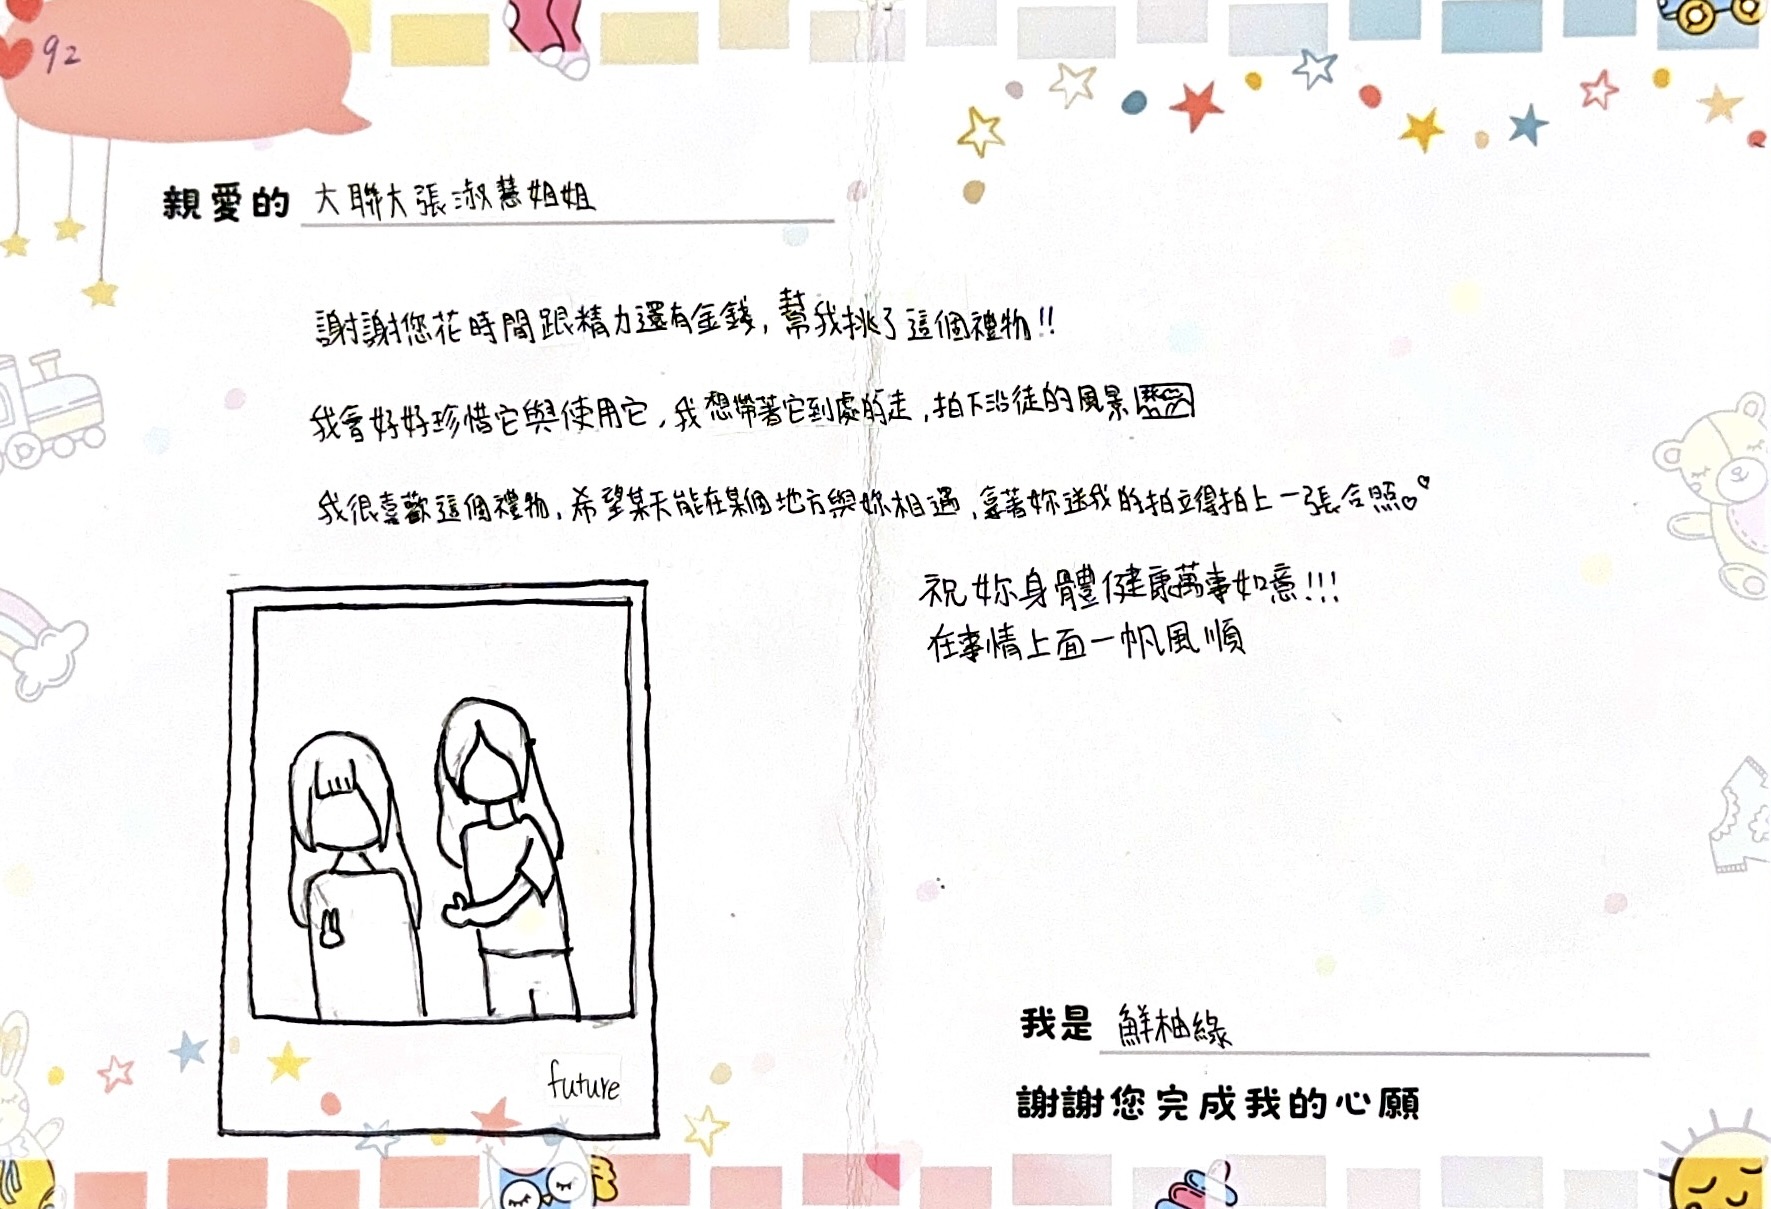 92
親愛的 大聯大張淑慧姐姐
謝謝您花時間跟精力還有金錢，幫我挑了這個禮物!!
我會好好珍惜它與使用它，我想帶著它到處的走，拍下沿徒的風景
我很喜歡這個禮物，希望某天能在某個地方與妳相遇，拿著妳送我的拍立得拍上一張合照♡♡
祝妳身體健康萬事如意!!!
在事情上面一帆風順
future
我是 鮮柚綠
謝謝您完成我的心願